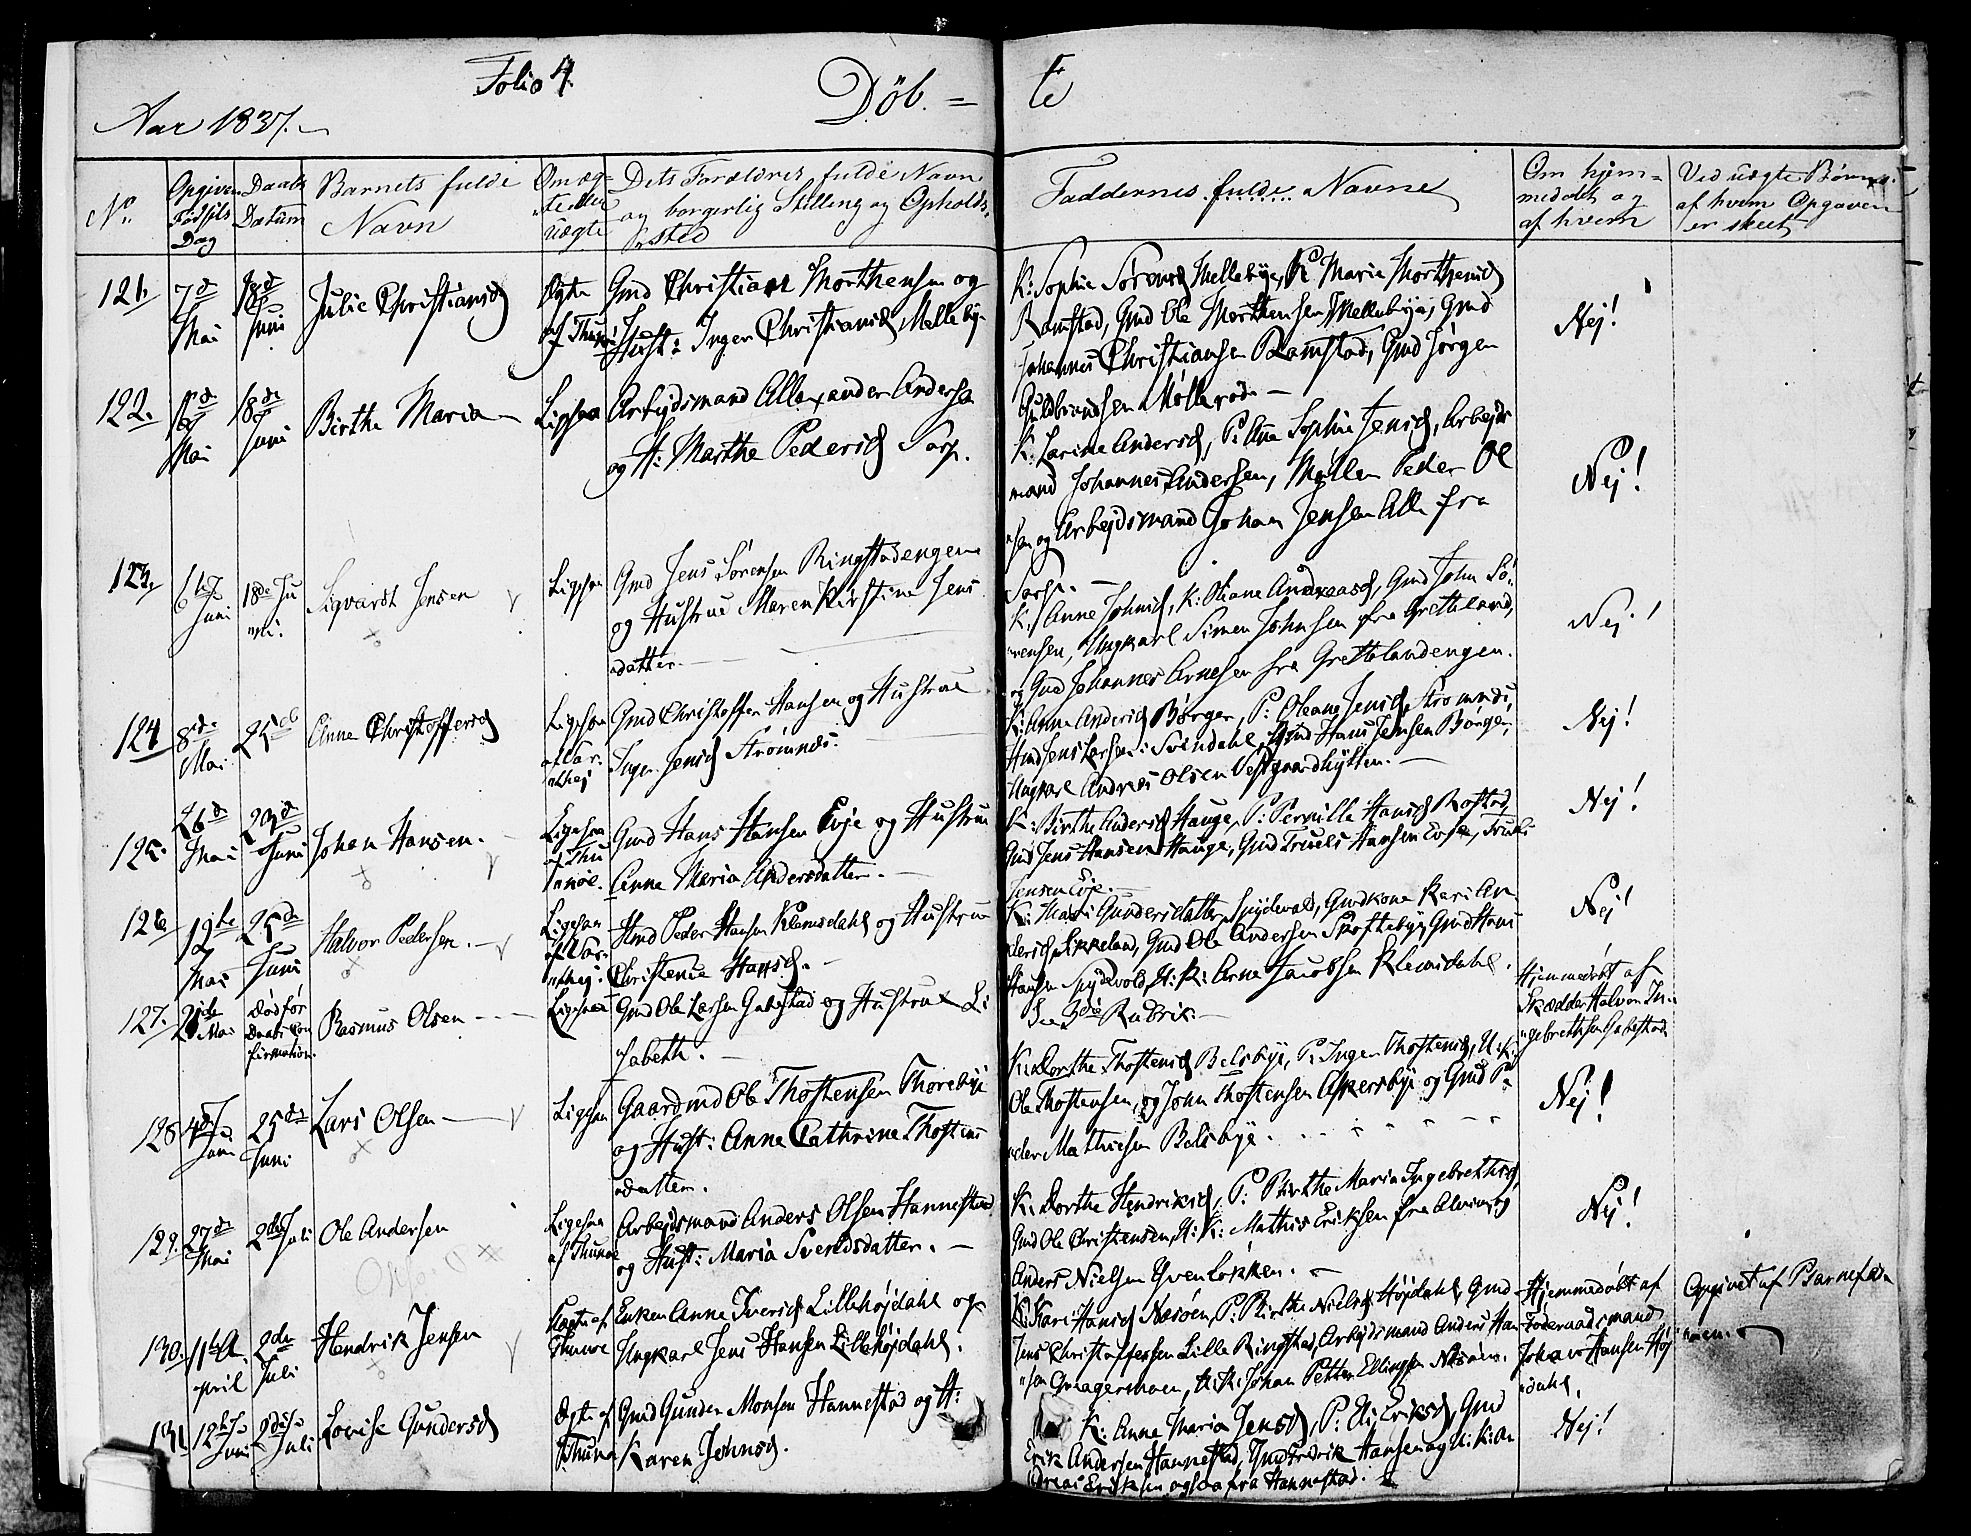 Folio 4.
Döb. = te
Aar 1837.
No.
Opgiven Fødsels Dag
Daabs Datum
Barnets fulde Navn
Om æg= te eller uægte
Dets Forældres fulde Navn og borgerlig Stilling og Opholds= sted
Faddernes fulde Navne
Om hjem= medøbt og af hvem
Ved uægte Børn, af hvem Opgaven er skeet
121.
7de Mai
18de Juni
Julie Christiansd
Ægte af
Gmd Christian Morthensen og
Hust: Inger Christiansd Melleby
K: Sophie Mellebye, P: Maria Morthensd
Ramstad, Gmd Ole Morthensen Mellebye, Gmd
Johannes Christiansen Ramstad, Gmd Jørgen
Guldbrandsen Møllerød. —
Nej!
122.
Mai
18de Juni
Birthe Maria
Ligesaa
Arbejdsmand Allexander Andersen
og H: Marthe Pedersd Sarp.
K: Karine Andersd, P: Ane Sophie Jensd, Arbejds
mand Johannes Andersen, Møller Peder Ol
sen og Arbejdsmand Johan Jensen Alle fra
Sarp. —
Nej!
123.
6te Juni
18de Ju
ni.
Sigvardt Jensen
Ligesaa
Gmd Jens Sørensen Ringstadengen
og Hustrue Maren Kirstine Jens
datter. —
K: Anne Johnsd, K: Oliane Andreasd, Gmd John Sö
rensen, Ungkarl Simen Johnsen fra Gretteland,
og Gmd Johannes Arnesen fra Grettelandengen.
Nej!
124
8de Mai
25de
Anne Christoffersd
Ligesaa
Gmd Christoffer Hansen og Hustrue
Inger Jensd Strømnes.
K: Anne Andersd Børger, P: Oleane Jensd Strømnes,
Gmd Jens Larsen Svendahl, Gmd Hans Jensen Børger,
Ungkarl Andreas Olsen Vestgaardhytten. —
Nej!
125.
26de Mai
23de Juni
Johan Hansen.
Ligesaa
af Thu
nøe.
Gmd Hans Hansen Evje og Hustrue
Anne Maria Andersdatter. —
K: Birthe Andersd Hauge, P: Pernille Hansd Rostad,
Gmd Jens Hansen Hauge, Gmd Truels Hansen Evje, Truls
Jensen Evje. —
Nej!
126
12te Mai
25de Juni
Halvor Pedersen. —
Ligesaa
Hmd Peder Hansen Klemsdahl og Hustrue
Christence Hansd. —
K: Mari Gundersdatter Spydevold, Gmdkone Kari An
dersd Likkeland, Gmd Ole Andersen Skoftebye, Gmd Hans
Hansen Spydevold, U: K: Arne Jacobsen Klemsdahl.
Nej!
127.
Mai
Død før Daabs Con firmation.
Rasmus Olsen
Ligesaa
Gmd Ole Larsen Gabestad og Hustrue Li
sabeth. —
See 3die Rubrik. —
Hjemmedøbt af
Skrædder Halvor In
gebrethsen Gabestad
128
4de Juni
25de Juni
Lars Olsen —
Ligesaa
Gaardmd Ole Thostensen Thorebye
og Hust: Anne Cathrine Thostens
datter.
K: Dorthe Thostensd Bolsbye, P: Inger Thostensd, U: K:
Ole Thostensen, og John Thostensen Askersbye og Gmd Pe
der Mathiesen Bolsbye.
Nej!
129.
27de Mai
2den Juli
Ole Andersen
Ligesaa
af Thunøe
Arbejdsmand Anders Olsen Hannestad
og Hust: Maria Svendsdatter. —
K: Dorthe Hendriksd, P: Birthe Maria Ingebrethsd,
Gmd Ole Christensen, U: K: Mathis Eriksen fra Alvim og
Anders Nielsen Yvenløkken. —
Nej!
130.
11te A
pril
2den Juli
Hendrik Jensen
Uægte af
Thunøe
Enken Anne Iversd Lillehøjdahl og
Ungkarl Jens Hansen Lillehøjdahl.
K: Kari Hansd Næsøen, P: Birthe Nielsd Højdahl, Gmd
Jens Christoffersen Lille Ringstad, Arbejdsmand Anders Han
sen, U: K: Johan Petter Ellingsen Næsøen.
Hjemmedøbt af
Føderaadsmand
Johan Hansen Høj
dahl.
Opgivet af Barnefad
eren.
131
12te Juni
2den Juli
Lovise Gundersd
Ægte af
Thunøe
Gmd Gunder Monsen Hannestad og H:
Karen Johnsd.
K: Anne Maria Jensd, P: Eli Eriksd, Gmd
Erik Andersen Hannestad, Gmd Fredrik Hansen og U: K: An
dreas Eriksen ogsaa fra Hannestad.
Nej!